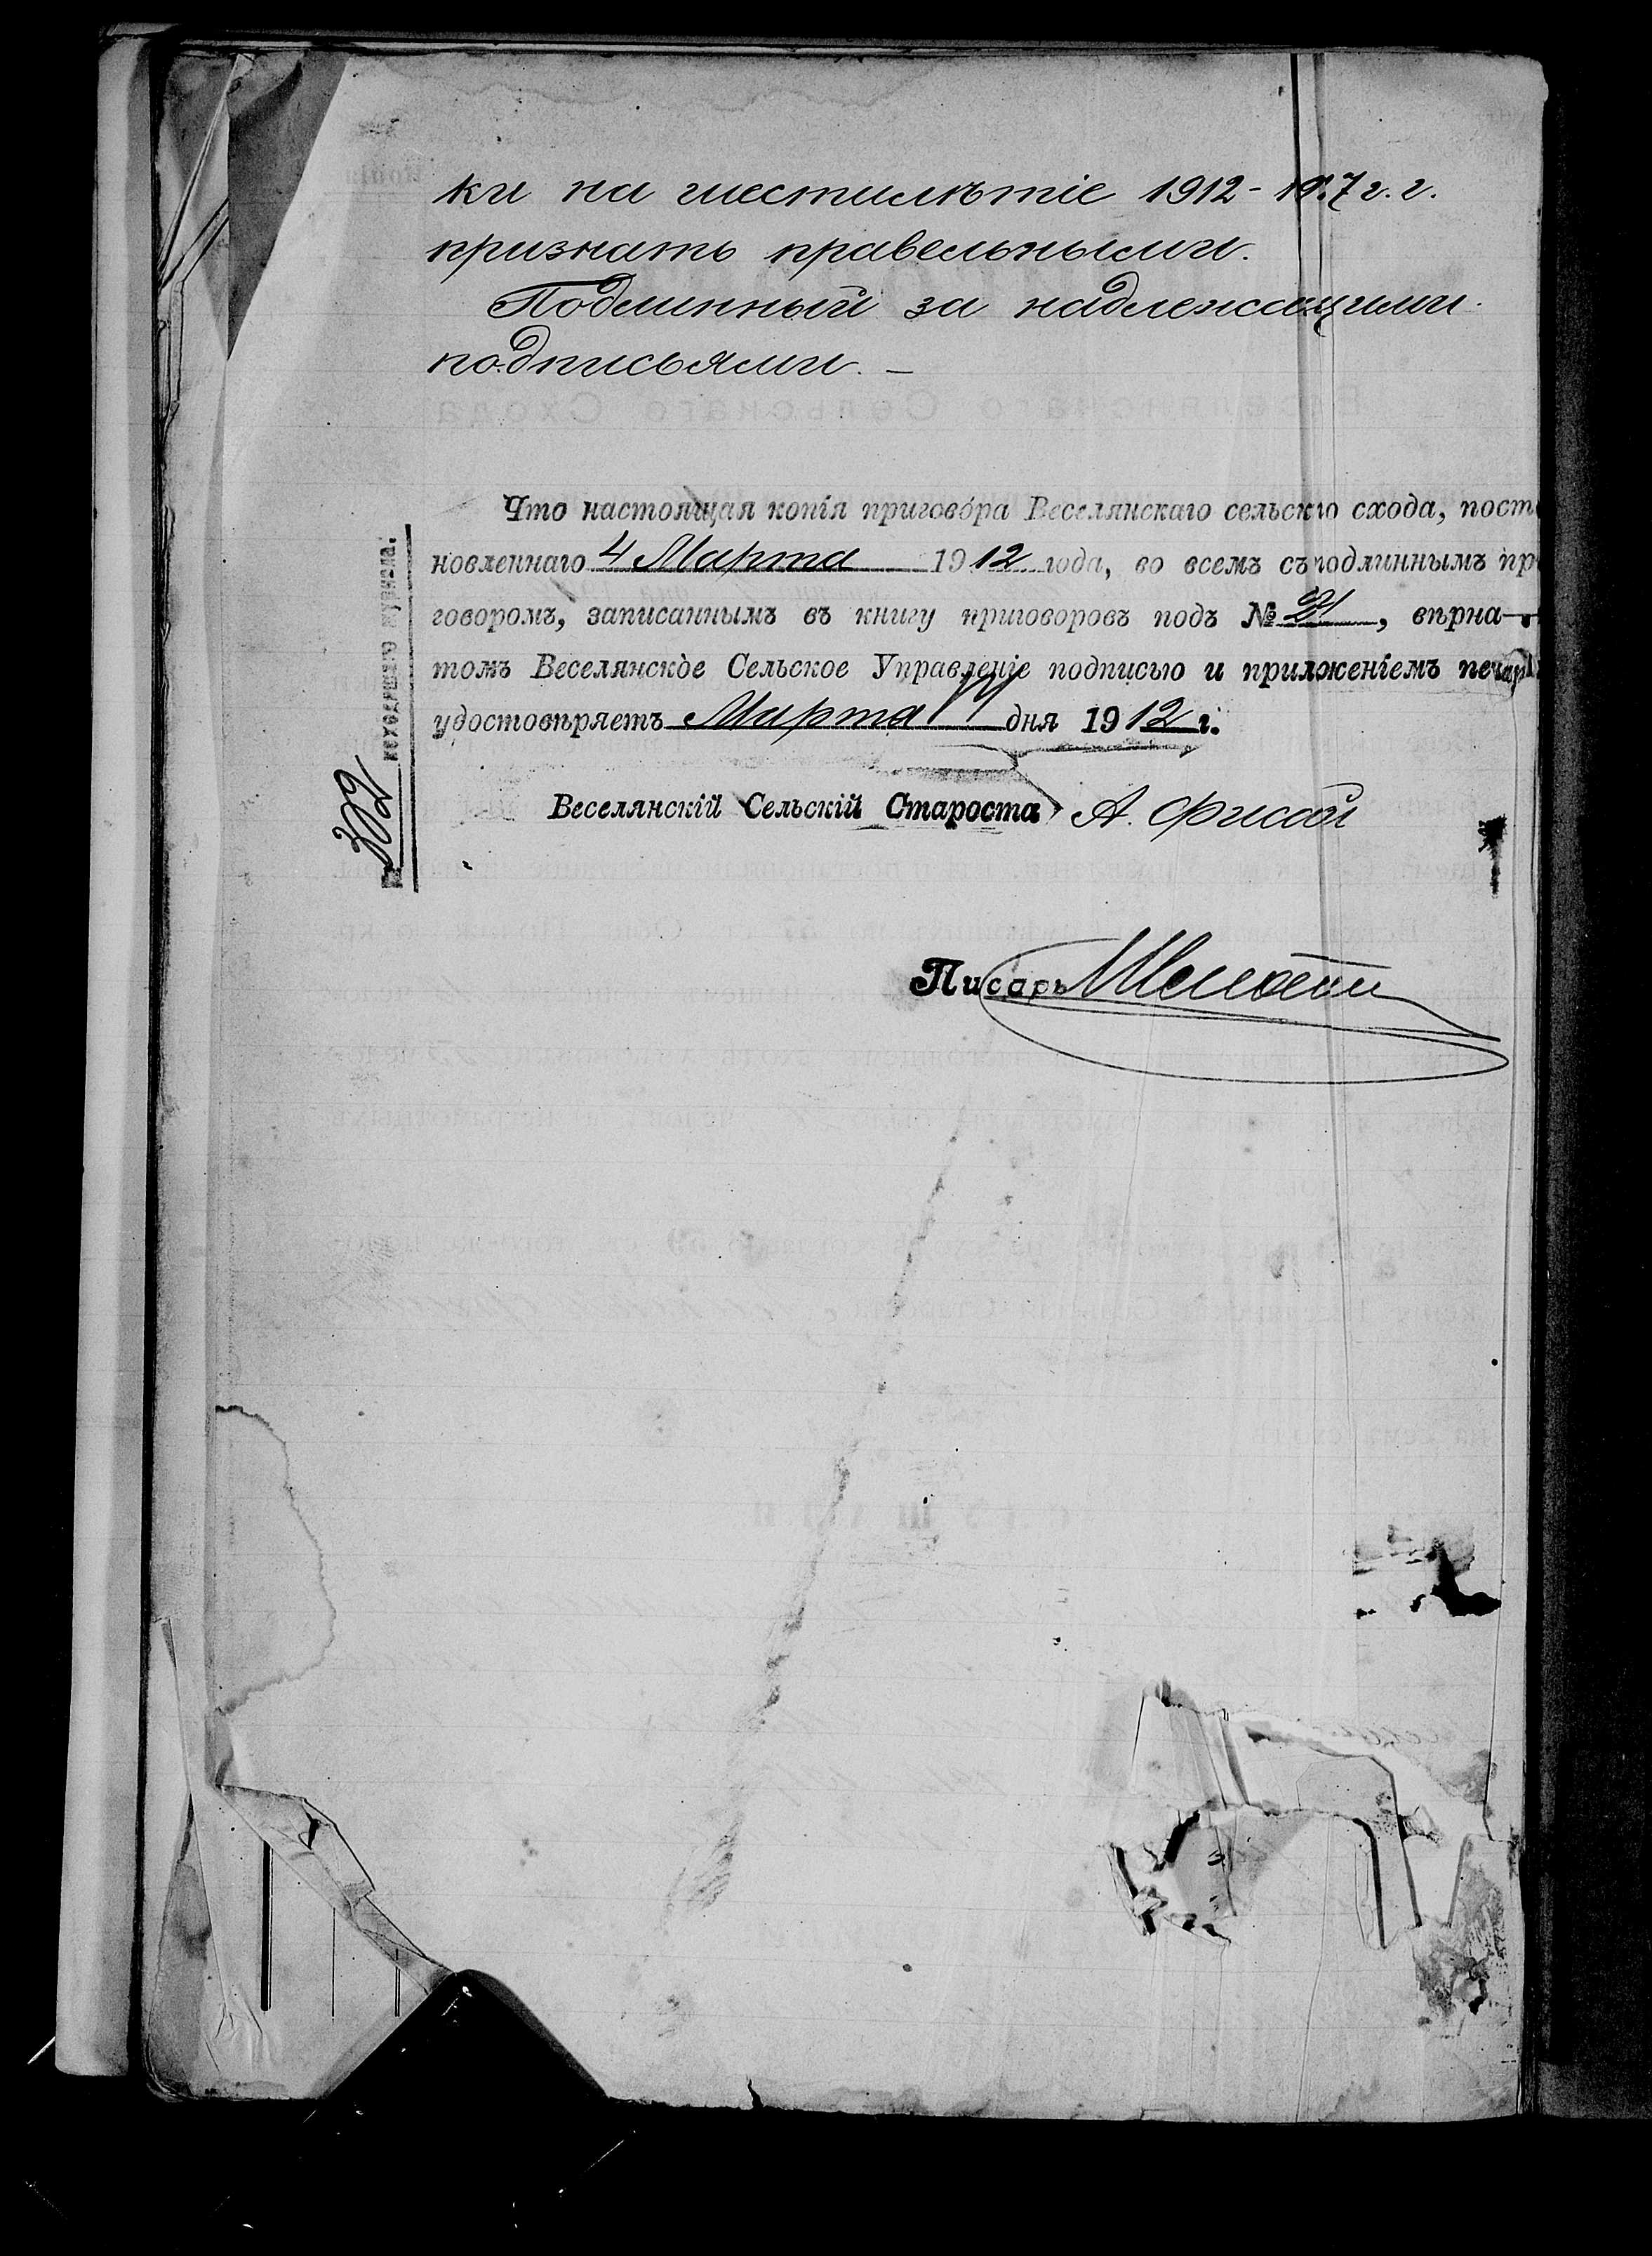 ки на шестилѣтіе 1912-1917 г. г.
признать правельными.
Подлинный за надлежащими
подписьями. —
Что настоящая копія приговора Веселянскаго сельскаго схода, пост
новленнаго 4 Марта 1912 года, во всемъ съ подлиннымъ пр
говоромъ, записаннымъ въ книгу приговоровъ подъ № 21, вѣрна—
томъ Веселянское Сельское Управленіе подписью и приложеніемъ печа
удостовѣряетъ Марта дня 1912 г.
№ 302 исходящаго журнала.
Веселянскій Сельскій Староста А.
Писарь